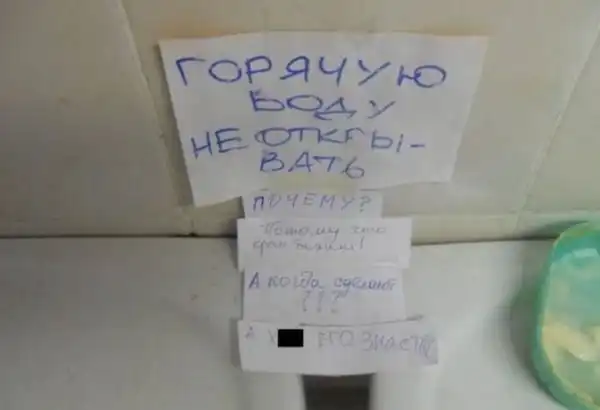 ГОРЯЧУЮ
ВОДУ
НЕ ОТКРЫ-
ВАТЬ
ПОЧЕМУ?
Потому что
А когда сделают
???
А ЕГО ЗНАЕТ